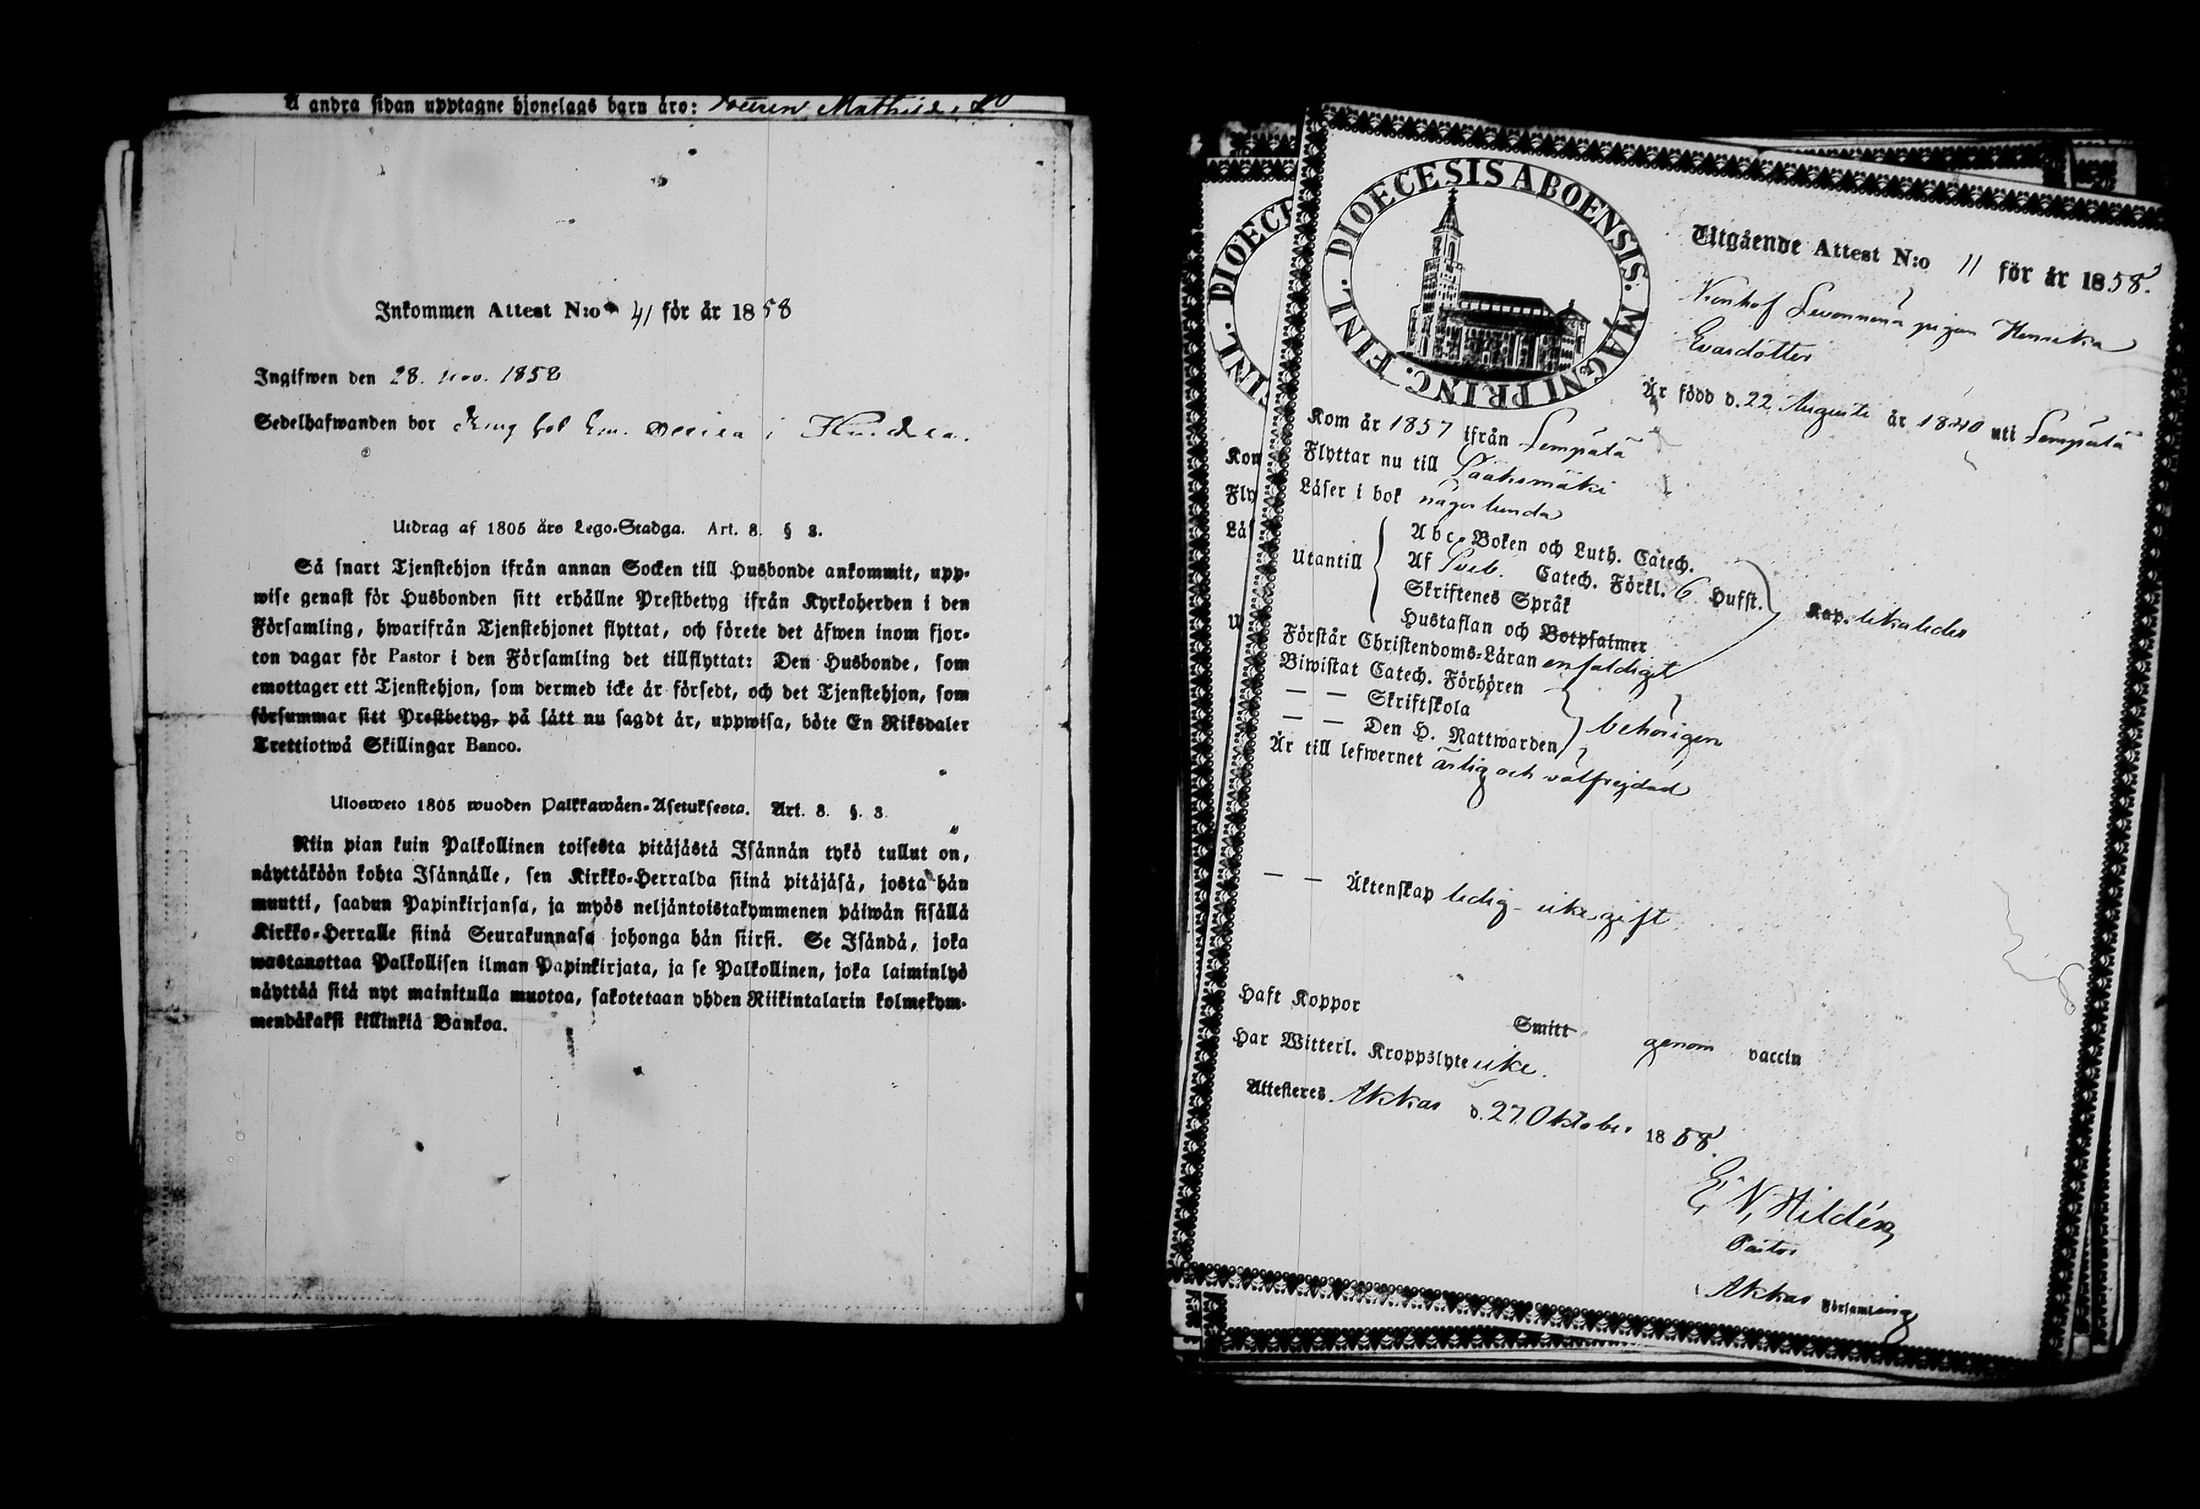 å andra sidan upptagne hjonelags barn äro:
Inkommen Attest N:o 41 för år 1858
Ingifwen den 28. nov. 1858
Sedelhafwanden bor i
Utdrag af 1805 års Lego-Stadga. Art. 8. § 3.
Så snart Tjenstehjon ifrån annan Socken till Husbonde ankommit, upp-
wise genast för Husbonden sitt erhållne Prestbetyg ifrån Kyrkoherden i den
Församling, hwarifrån Tjenstehjonet flyttat, och förete det äfwen inom fjor-
ton dagar för Pastor i den Församling det tillflyttat: Den Husbonde, som
emottager ett Tjenstehjon, som dermed icke är försedt, och det Tjenstehjon, som
försummar sitt Prestbetyg, på sätt nu sagdt är, uppwisa, böte En Riksdaler
Trettiotwå Skillingar Banco.
Ulosweto 1805 wuoden Palkkawäen-Asetuksesta. Art. 8. §. 3.
Niin pian kuin Palkollinen toisesta pitäjästä Isännän tykö tullut on,
näyttäköön kohta Isännälle, sen Kirkko-Herralda siinä pitäjäsä, josta hän
muutti, saadun Papinkirjansa, ja myös neljäntoistakymmenen päiwän sisällä
Kirkko-Herralle siinä Seurakunnasa johonga hän siirsi. Se Isändä, joka
wastanottaa Palkollisen ilman Papinkirjata, ja se Palkollinen, joka laiminlyö
näyttää sitä nyt mainitulla muotoa, sakotetaan yhden Riikintalarin kolmekym-
mendäkaksi killinkiä Bankoa.
DIOECESIS ABOENSIS. MAGNI PRINC. FINL.
Utgående Attest N:o 11 för år 1858.
pigan Henrika
Evasdotter
Är född d. 22 Augusti år 1840 uti Lempälä
Kom år 1857 ifrån Lempälä
Flyttar nu till Sääksmäki
Läser i bok någorlunda
Utantill
Abc-Boken och Luth. Catech.
Af Sveb. Catech. Förkl. 6 Hufst.
Skriftenes Språk
Hustaflan och Botpsalmer
Kap. likaledes
Förstår Christendoms-Läran enfaldigt
Biwistat Catech. Förhören
— — Skriftskola
— — Den H. Nattwarden
behörigen
Är till lefwernet ärlig och välfrejdad
— — Äktenskap ledig - icke gift
Haft Koppor Smitt genom vaccin
Har Witterl. Kroppslyte icke.
Attesteras. Akkas d. 27 Oktober 1858.
E. N. Hildén
Pastor
Akkas Församling